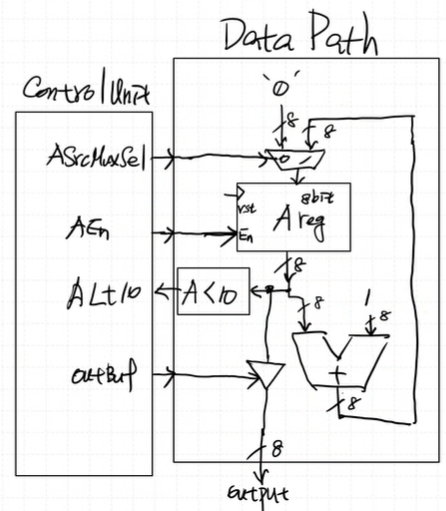 Data Path
Control Unit
'0'
8
8
ASrcMuxSel
0 1
8bit
rst
A reg
AEn
En
8
ALt10
A<10
8
1
8
+
outBuf
8
8
output